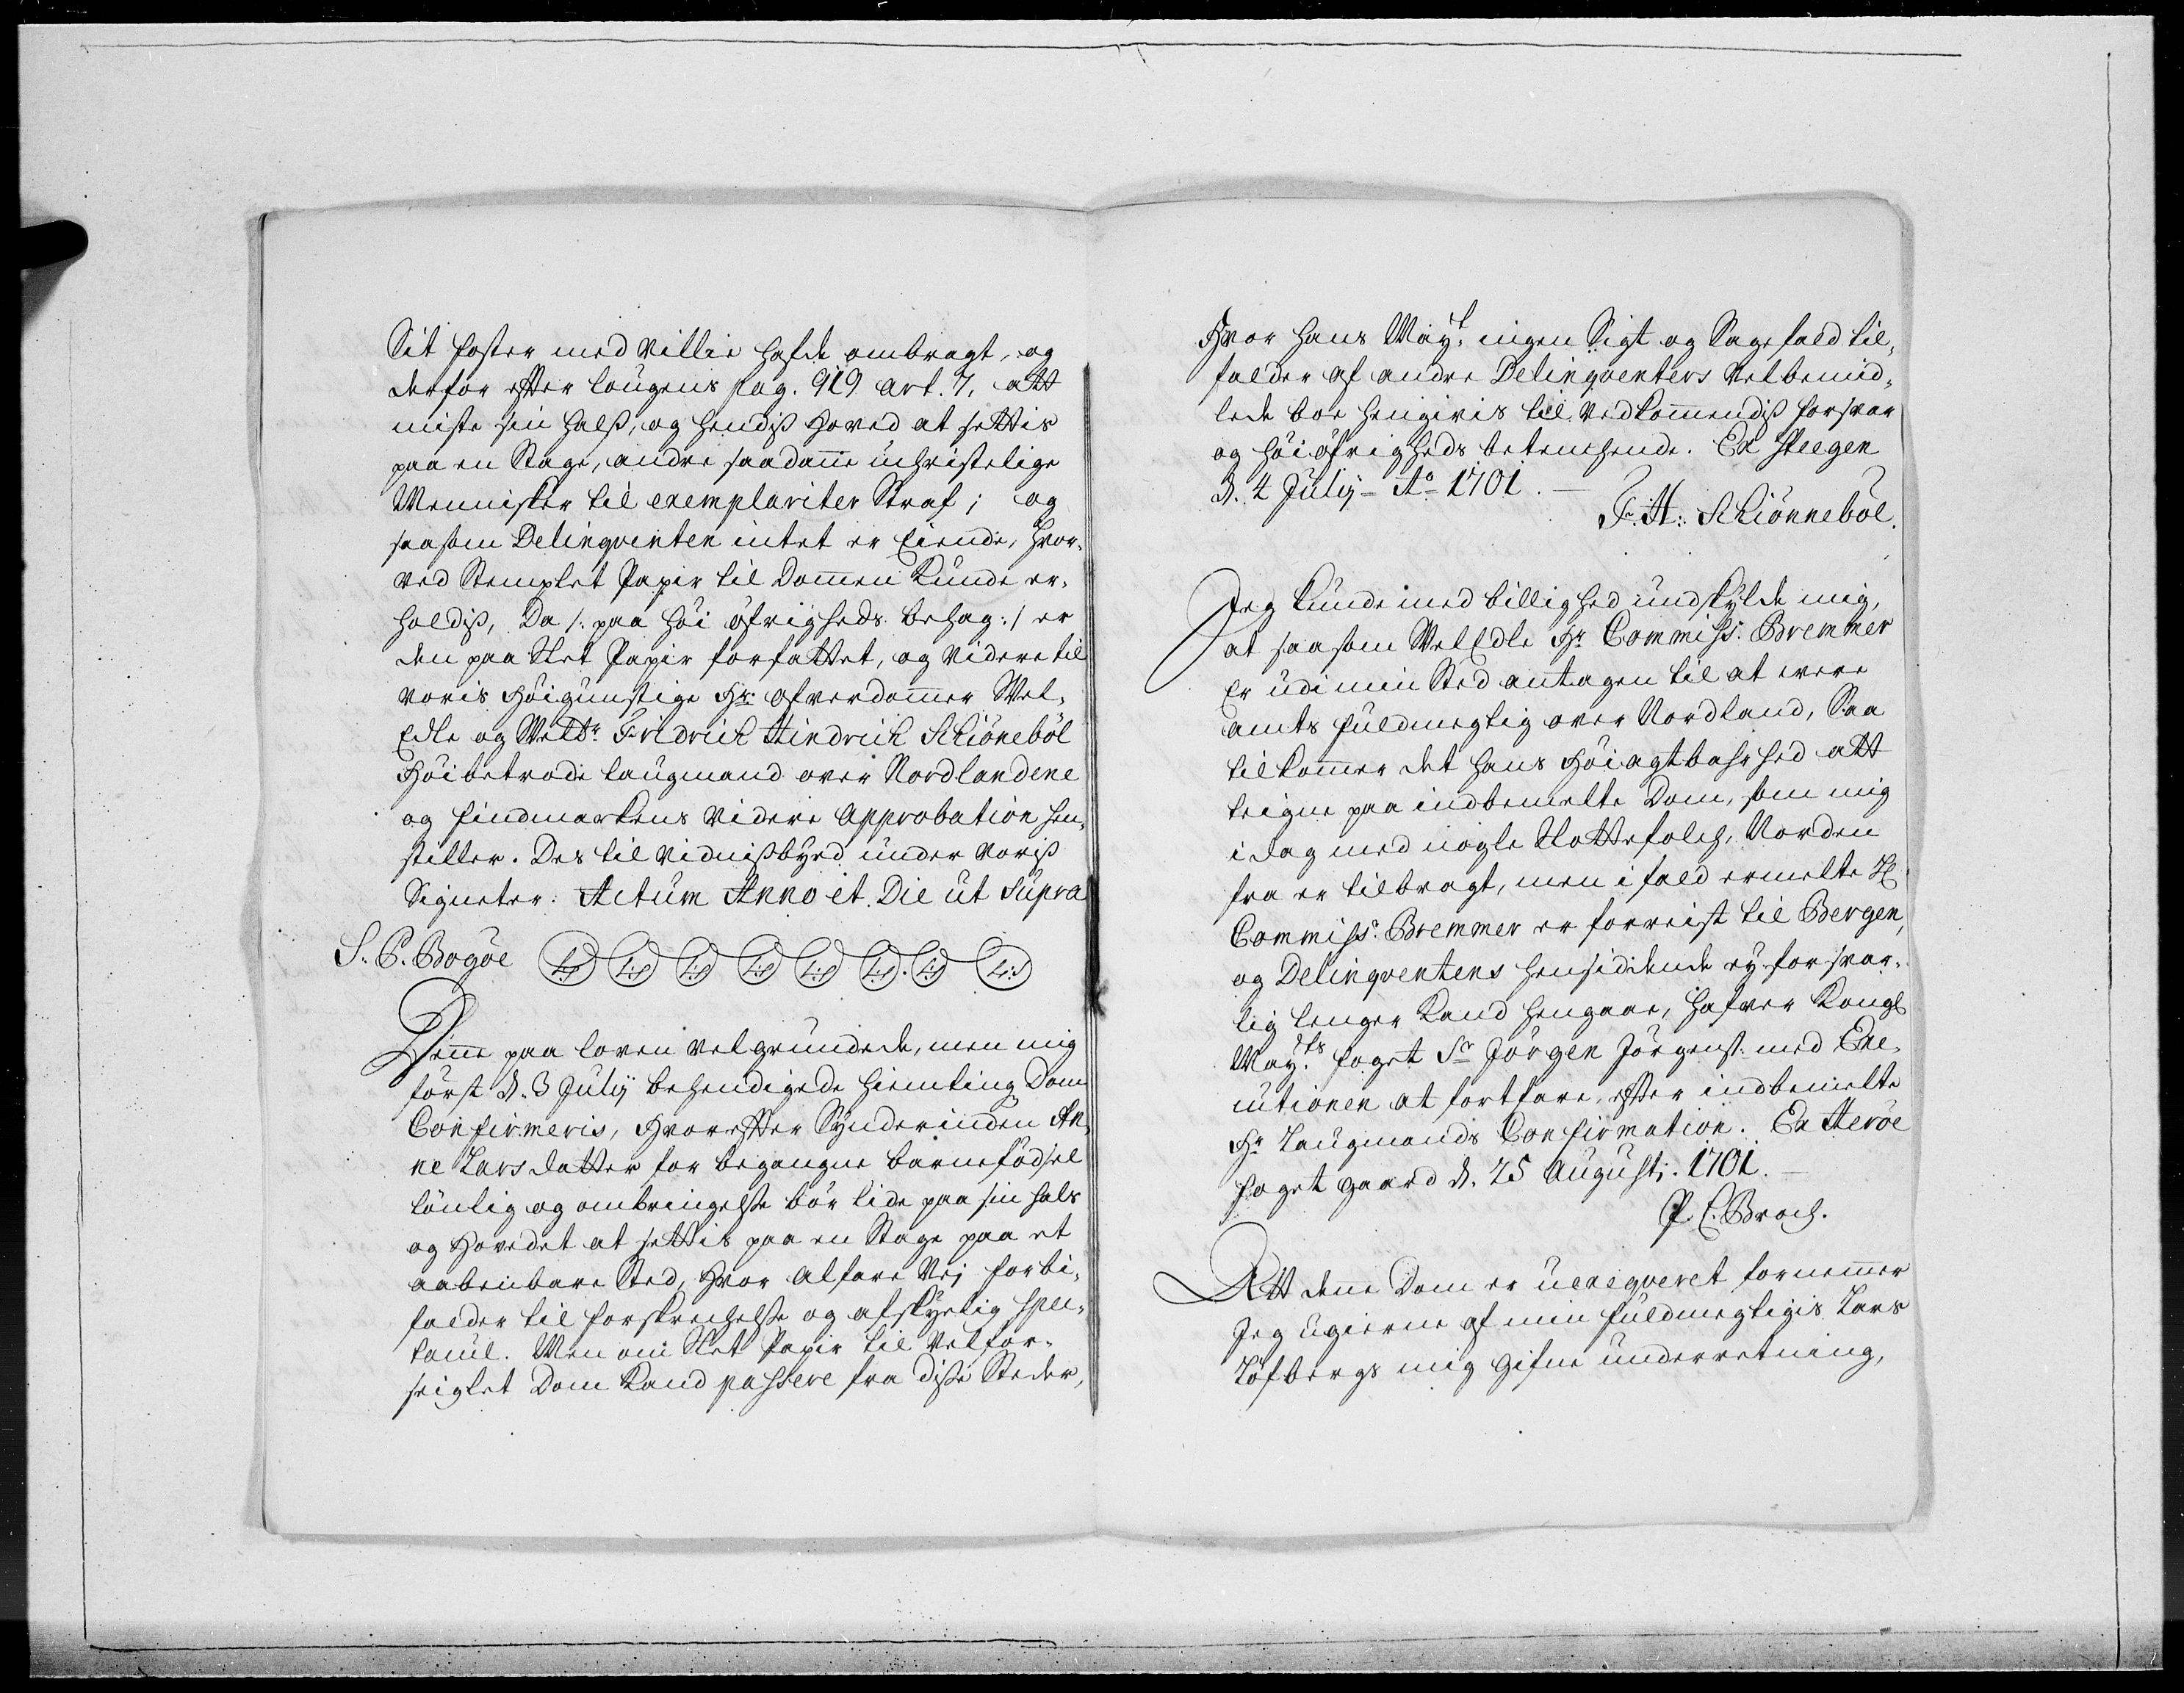 Sit foster med villie hafde ombragt, og
derfor efter lougens pag. 919 art. 7, att
miste sin halss, og hendiss hoved at settis
paa en Stage, andre saadanne uchristelige
Mennisker til exemplariter Straf; og
saasom Delinqventen intet er Eiende, hvor¬
ved Stemplet Papir til Dommen kunde er¬
holdiss, Da /: paa høi øfrigheds behag :/ er
den paa Slet Papir forfattet, og videre til
voris Høigunstige Hr. ofverdommer Wel¬
Edle og Welb:r Fridrich Hindrich Schiöneböl
Høibetrode laugmand over Nordlandene
og Findmarkens videre Approbation hen¬
stiller. Des til vidnissbyrd under voriss
Signeter: Actum Anno et Die ut Supra
S. P. Bogøe L:S L:S L:S L:S L:S L:S. L:S L:S
Denne paa loven velgrundede, men mig
først d. 3 Julij behendigede hiemting Dom
Confirmeris, hvorefter Synderinden An¬
ne Larsdatter for begangne barnefødsel
lønlig og ombringelsse bør lide paa sin hals
og hovedet at settis paa en Stage paa et
aabenbare Sted, hvor alfare Vej forbi¬
falder til forskrechelsse og afskyelig spec¬
tacul. Men om Slet Papir til Velfor¬
seiglet Dom kand passere fra disse Steder,
Hvor hans May:t ingen Sigt og Sagefald til¬
falder af andre Delinqventers Velbemid¬
lede boe hengivis til vedkommendiss forsvar
og høiøfrigheds betenchende. Ex Steegen
d. 4 Julij Ao 1701.
F. H: Schiönneböl.
Jeg kunde med billighed undskylde mig,
at saasom WelEdle Hr Commiss: Bremmer
er udi min Sted antagen til at were
amts fuldmegtig over Nordland, Saa
tilkommer det hans Høiagtbahrhed att
teigne paa indbemelte Dom, som mig
idag med nogle Slottefolch, Norden
fra er tilbragt, men i fald ermelte H
Commiss:r Bremmer er forreist til Bergen,
og Delinqventens hensiddende ey forsvar¬
lig lenger kand hengaae, hafver kongl
May:ts foget Sr Jörgen Jörgens: med Exe¬
cutionen at fortfare, efter indbemelte
Hr Laugmands Confirmation. Ex Herøe
foget gaard d. 25 Augusti. 1701.
P. C. Broch.
Att denne Dom er uexeqveret fornemmer
Jeg ugierne af min fuldmegtigis Lars
Löfbergs mig gifne underretning,